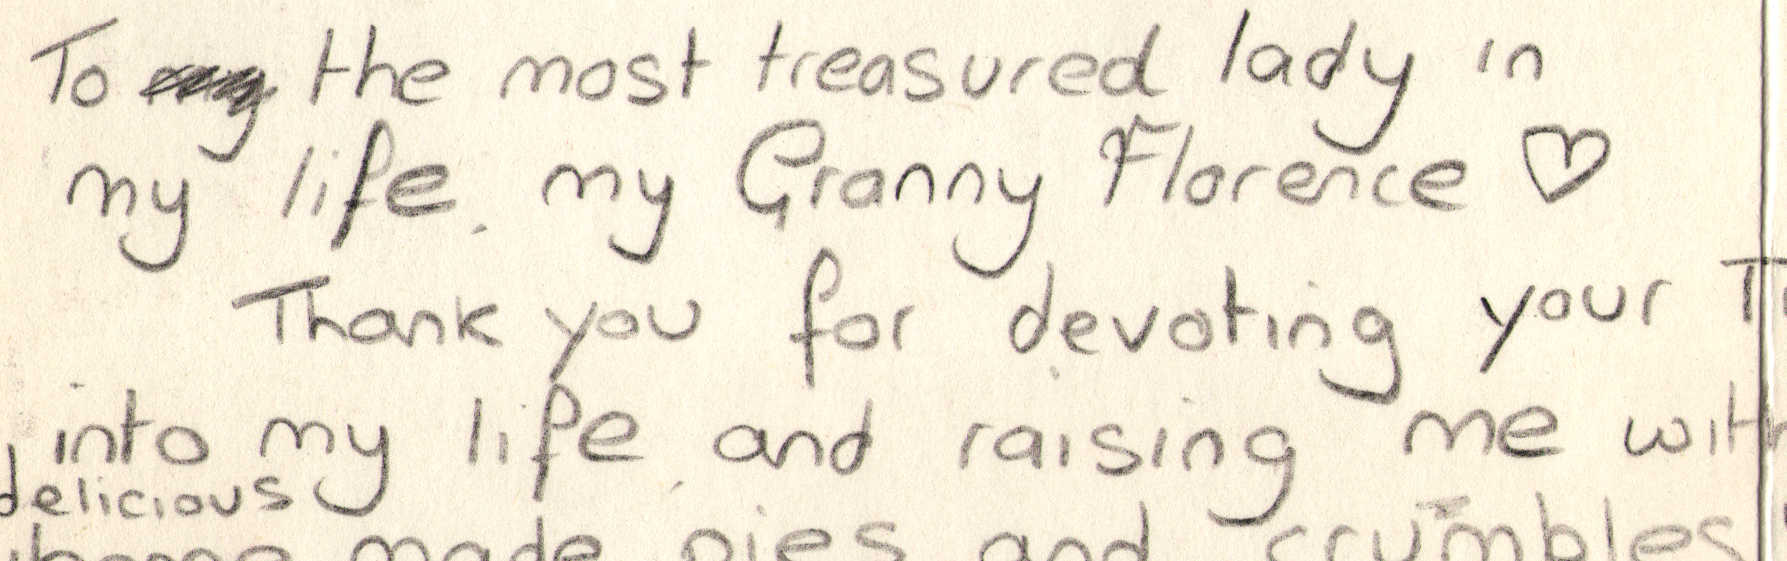 To the most treasured lady in
my life. my Granny Florence ♡
Thank you for devoting your
into my life and raising me with
delicious
home made pies and crumbles